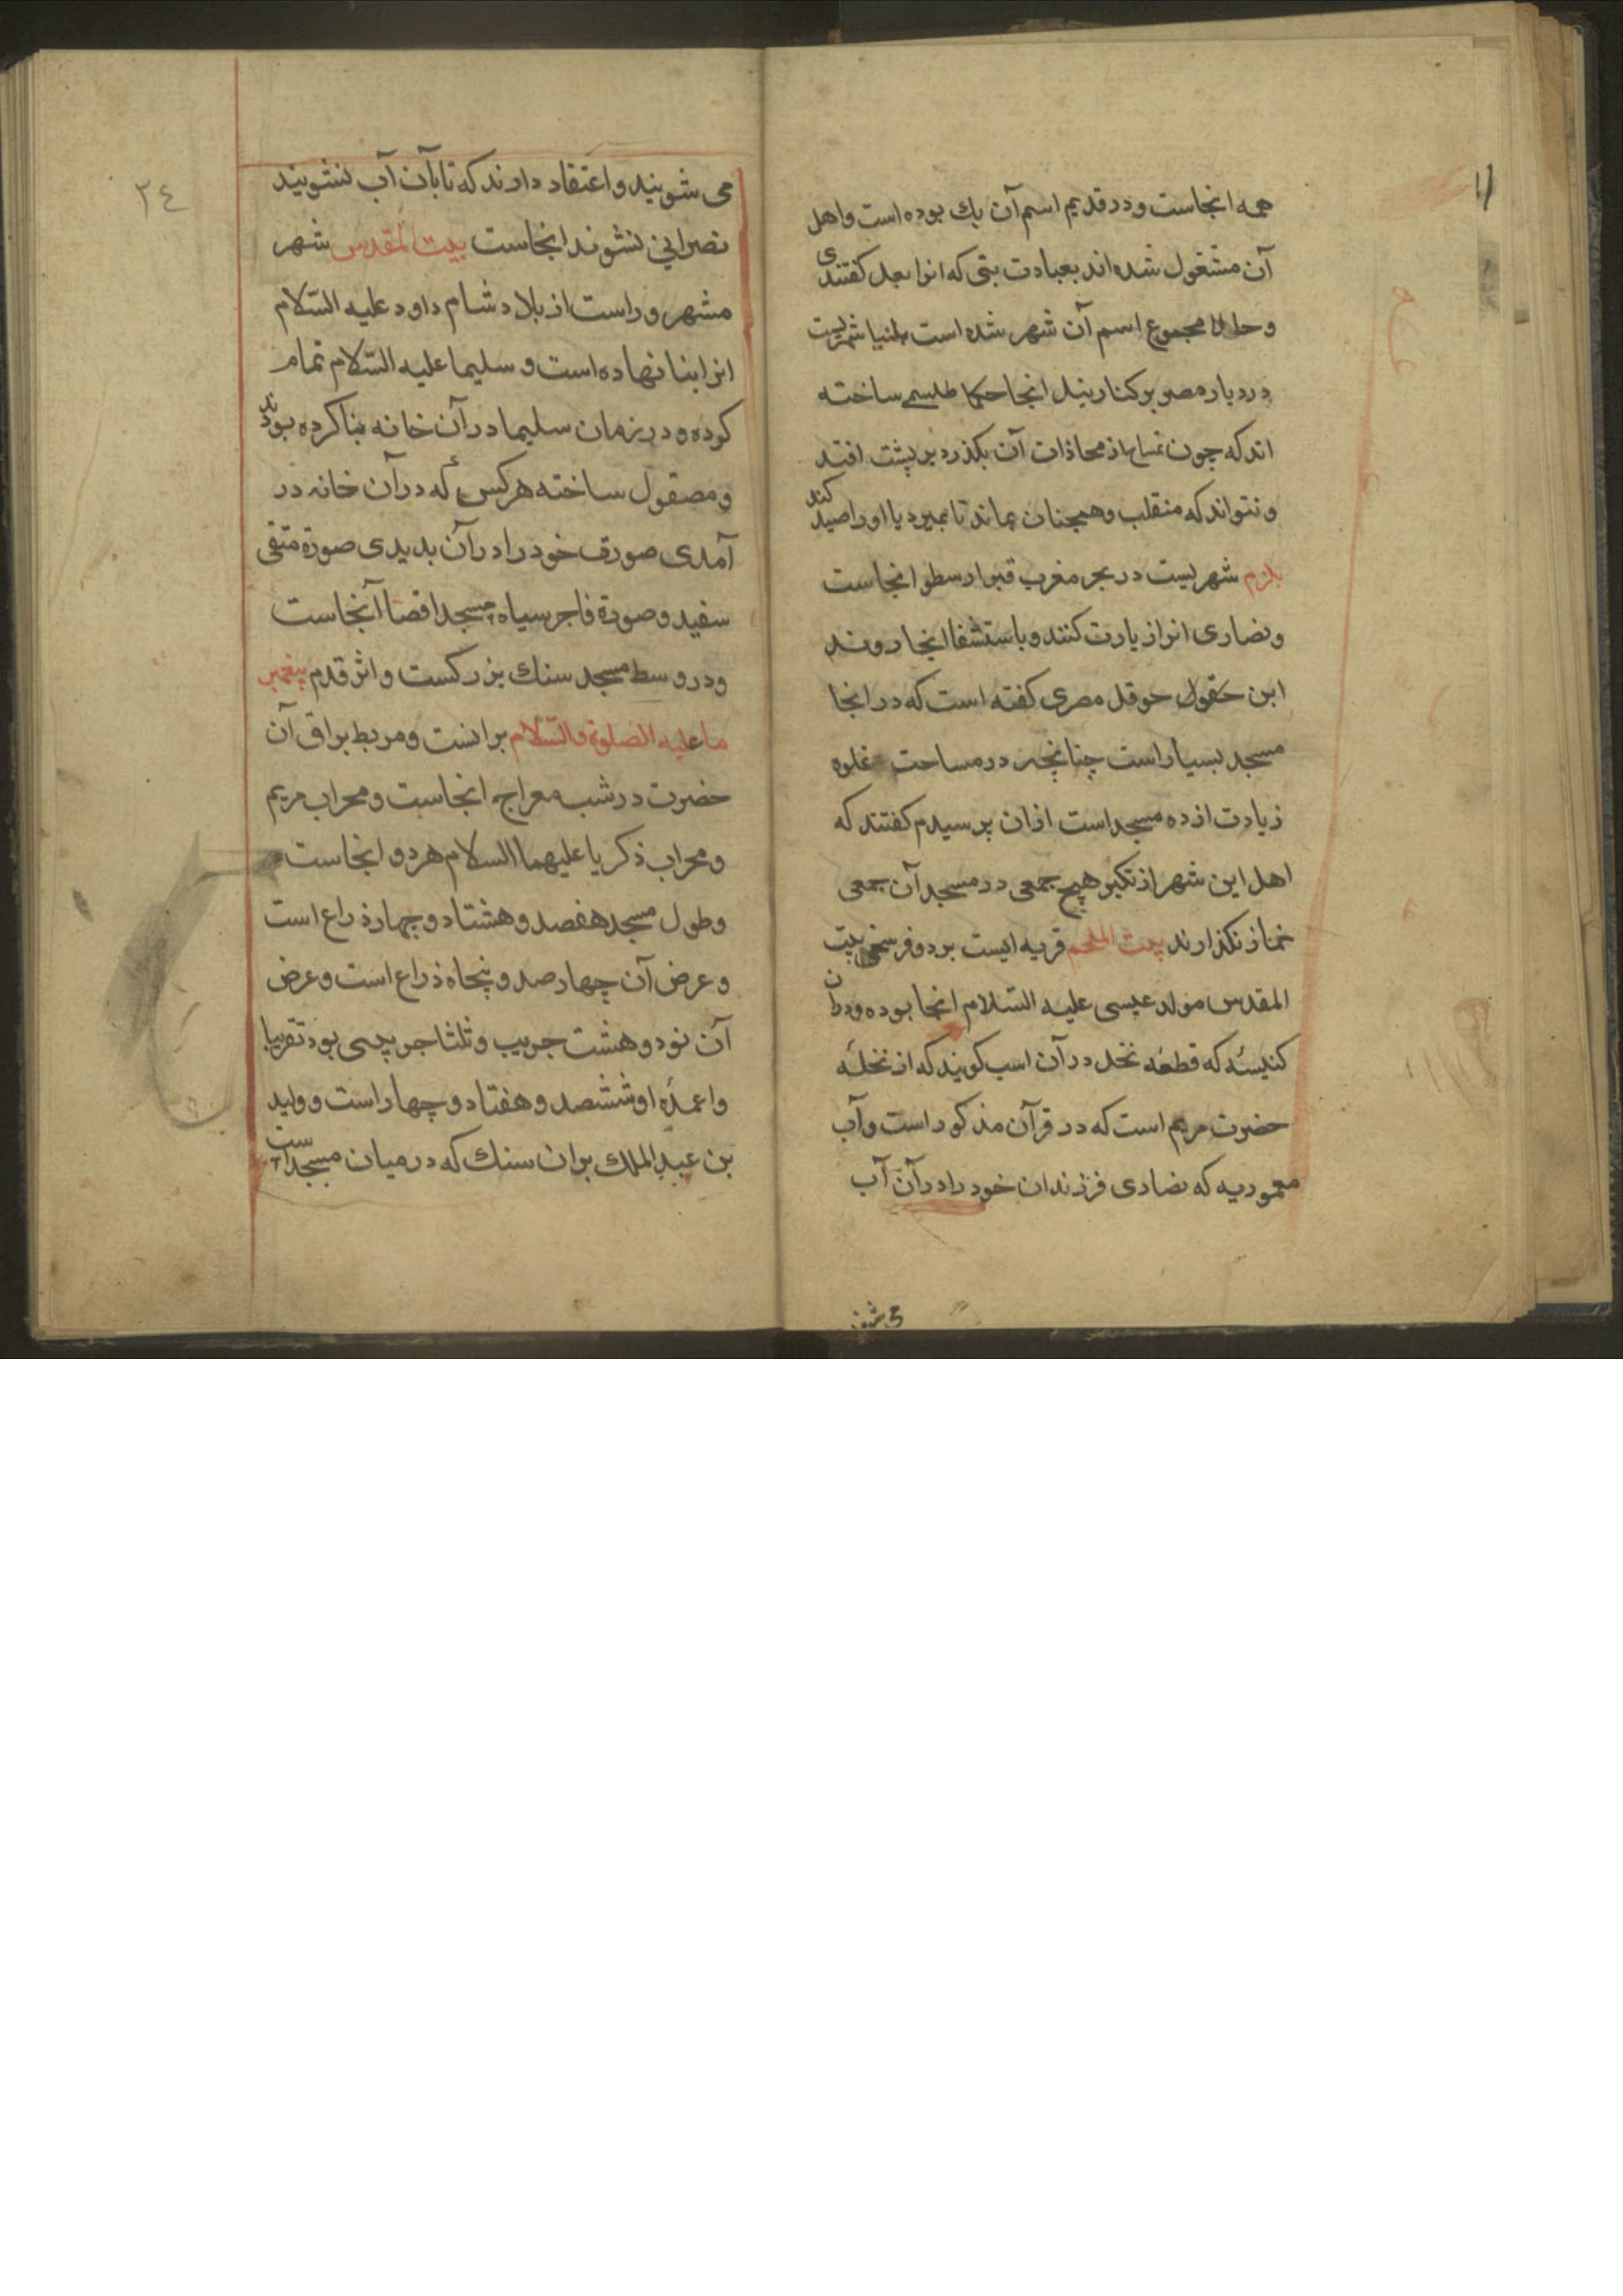 همه انجاست و در قدیم اسم آن بك بوده است و اهل
آن مشغول شده اند بعبادت بتی که انرا بعل کفتندی
و حالا مجموع اسم آن شهر شده است بلنیا شهریست
در دیار مصر بر کنار نیل انجا حکما طلسمی ساخته
اند که چون تمساح از محاذات آن بکذرد بر پشت افتد
و نتواند که منقلب وهمچنان بماند تا بمیرد یا او را صید کند
بلرم شهریست در بحر مغرب قبر ارسطو انجاست
و نصاری انرا زیارت کنند و باستشفا انجا روند
ابن حقول حوقل مصری کفته است که در انجا
مسجد بسیار است چنانچه در مساحت غلوه
زیادت از ده مسجد است ازان پرسیدم کفتند که
اهل این شهر از تکبر هیچ جمعی در مسجد آن جمعی
نماز نکذارند بیت الملحم قریه ایست بر دو فرسخی بیت
المقدس مولد عیسی علیه السّلام انجا بوده ودران
کنیسئه که قطعه نخل در آن است کویند که از نخلهٔ
حضرت مریم است که در قرآن مذکور است وآب
معموریه که نصاری فرزندان خود را در آن آب
می شو
۲٤
می شویند و اعتقاد دارند که تا بآن آب نشویند
نصرانی نشوند انجاست بیت المقدس شهر
مشهور و راست از بلاد شام داود علیه السّلام
انرا بنا نهاده است و سلیما علیه السّلام تمام
کوده و در زمان سلیما در آن خانه بنا کرده بودند
و مصقول ساخته هر کس که در آن خانه در
آمدی صورت خود را در آن بدیدی صورة متقی
سفید و صورة فاجر سیاه مسجد اقصا آنجاست
و در وسط مسجد سنك بزرکست و اثر قدم پیغمبر
ما علیه الصلوة والسّلام برانست و مربط براق آن
حضرت در شب معراج انجاست و محراب مریم
و محراب ذکریا علیهما السلام هر دو انجاست
و طول مسجد هفصد و هشتاد و چهار ذراع است
و عرض آن چهار صد و پنجاه ذراع است و عرض
آن نود و هشت جریب و ثلثا جریبی بود تقریبا
و اعمدٔه او ششصد و هفتاد و چهار است و ولید
بن عبد الملك بران سنك که در میان مسجد است